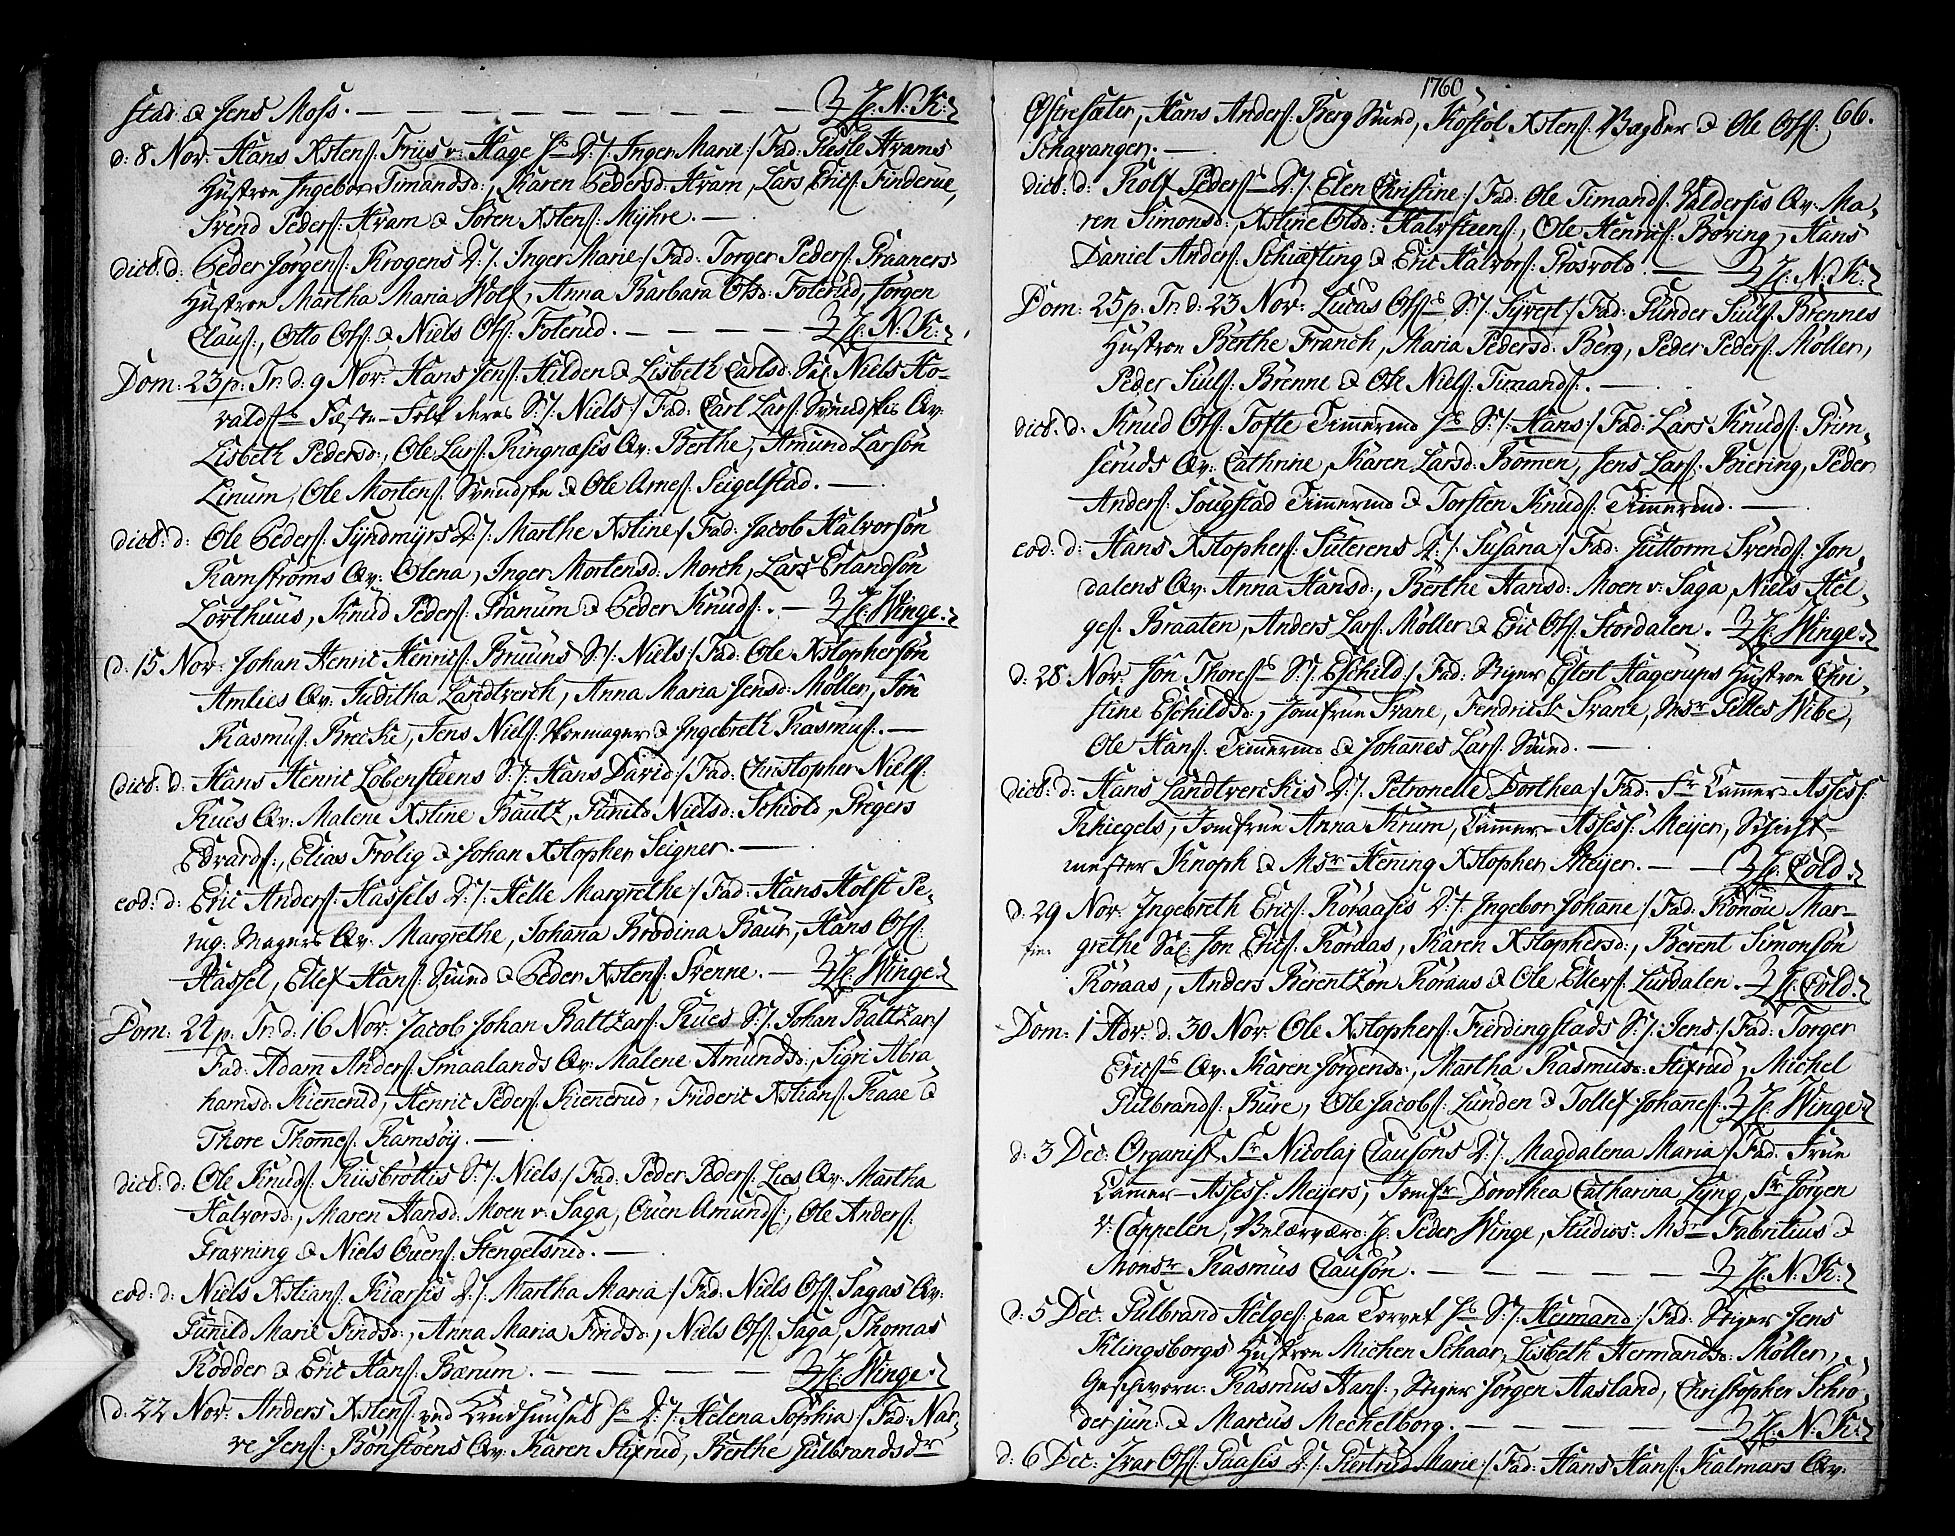 stad: & Jens Moss. — — — — — — — H: N: K:
d: 8 Nov: Hans Xstens: Friis v: Hage D: /: Inger Marie :/ Fad: Hrams
Hustroe Ingebor Timandsd:, Karen Pedersd: Hram, Lars Erics: Finderue,
Svend Peders: Hram & Sören Xstens: Myhre. —
dict: d: Peder Jörgens: Krogens D: /: Inger Marie :/ Fad: Torger Peders: Praaners
Hustroe Martha Maria Wolf, Anna Barbara Olsd: Foterud, Jörgen
Claus:, Otto Ols: & Niels Ols: Foterud. — — — — H: N: K:
Dom: 23 p: Tr: d: 9 Nov: Hans Jens: Hilden & Lisbeth Carlsd: Sal: Niels Ho-
valds: Fæste-Folk deres S: /: Niels :/ Fad: Carl Lars: Svendskis Qv:
Lisbeth Pedersd:, Ole Lars: Ringnæsis Qv: Berthe, Amund Larsön
Linum, Ole Mortens: Svendske & Ole Arnes: Seigelstad. —
dict: d: Ole Peders: Syndmyrs D: /: Marthe Xstine :/ Fad: Jacob Halvorsön
Ramströms Qv: Olena, Inger Mortensd: Morch, Lars Erlandsön
Lorthuus, Knud Peders: Pranum & Peder Knuds:. — H: Winge.
d: 15 Nov: Johan Henric Henrics: Bruuns S: /: Niels :/ Fad: Ole Xstophersön
Amlies Qv: Juditha Landtverch, Anna Maria Jensd: Möller, Jön
Rasmus: Brecke, Jens Niels: Skoemager & Ingebreth Rasmus:. —
dict: d: Hans Henric Lobensteens S: /: Hans David :/ Fad: Christopher Niels:
Rues Qv: Malene Xstine Bautz, Gunild Nielsd: Schiold, Gregers
Edvards:, Elias Frölig & Johan Xstopher Seigner. —
eod: d: Eric Anders: Hassels D: /: Helle Margrethe :/ Fad: Hans Holst Pe-
rug: Magers Qv: Margrethe, Johanna Brodina Baur, Hans Ols:
Hassel, Ellef Hans: Sund & Peder Xstens: Svenne. — H: Winge.
Dom: 24 p: Tr: d: 16 Nov: Jacob Johan Baltzars: Rues S: /: Johan Baltzar :/
Fad: Adam Anders: Smaalands Qv: Malene Amundsd:, Sigri Abra
hamsd: Kiennerud, Henric Peders: Kiennerud, Frideric Xstians: Kaae &
Thore Thommes: Ramsöy. —
dict: d: Ole Knuds: Kiisbröttis S: /: Niels :/ Fad: Peder Peders: Lies Qv: Martha
Halvorsd:, Maren Hansd: Moen v: Saga, Ouen Amunds:, Ole Anders:
Gravning & Niels Ouens: Stengelsrud. —
eod: d: Niels Xstians: Kiærsis D: /: Martha Maria :/ Fad: Niels Ols: Sagas Qv:
Gunild Marie Findsd:, Anna Maria Findsd:, Niels Ols: Saga, Thomas
Rödder & Eric Hans: Bærum. — — — — — — H: Winge.
d: 22 Nov: Anders Xstens: ved D: /: Helena Sophia :/ Fad: Nar-
ve Jens: Bönstöens Qv: Karen Stifrud, Berthe Gulbrandsdr
1760
66.
Östresæter, Hans Anders: Berg Sund, Kostol Xstens: Bagder & Ole Ols:
Schavangen. —
dict: d: Rolf Peders: D: /: Elen Christine :/ Fad: Ole Timands: Valdersis Qv: Ma-
ren Simonsd:, Xstine Olsd: Halvsteens:, Ole Henrics: Boring, Hans
Daniel Anders: Schiæfling & Eric Halvors: Prosvold. — — H: N: K:
Dom: 25 p: Tr: d: 23 Nov: Lucas Ols: S: /: Syvert :/ Fad: Gunder Juls: Brennes
Hustroe Berthe Franch, Maria Pedersd: Berg, Peder Peders: Möller,
Peder Juls: Brenne & Ole Niels: Timands:. —
dict: d: Knud Ols: Tofte Timermd S: /: Hans :/ Fad: Lars Knuds: Prim-
seruds Qv: Cathrine, Karen Larsd: Bömen, Jens Lars: Biering, Peder
Anders: Sougstad Timermd & Torsten Knuds: Timermd. —
eod: d: Hans Xstophers: Suterens D: /: Susana :/ Fad: Guttorm Svends: Jon-
dalens Qv: Anna Hansd:, Berthe Hansd: Moen v: Saga, Niels Hel-
ges: Braaten, Anders Lars: Möller & Eric Ols: Stordalen. — H: Winge.
d: 28 Nov: Jon Thores: S: /: Eschild :/ Fad: Stiger Estert Hagerups Hustroe Chri-
stine Eschildsd:, Jomfrue Svane, Fendrick Svane, Msr Pilles Wibe,
Ole Hans: Timermd & Johannes Lars: Sund. —
dict: d: Hans Landtverckis D: /: Petronelle Dorthea :/ Fad: Fr Cammer-Assess:
Rhiegels, Jomfrue Anna Krum, Cammer-Assess: Meyer, Schicht-
mester Knoph & Msr Hening Xstopher Meyer. — — H: Cold.
d: 29 Nov: Ingebreth Erics: Röraasis D: /: Ingebor Johane :/ Fad: Konou Mar-
grethe Sal: Jon Erics: Röraas, Karen Xstophersd:, Berent Simonsön
Röraas, Anders Berentzön Röraas & Ole Ellefs: Lurdalen. — H: Cold.
Dom: 1 Adv: d: 30 Nov: Ole Xstophers: Fierdingstads S: /: Jens :/ Fad: Torger
Erics: Qv: Karen Jörgensd:, Martha Rasmusd: Stifrud, Michel
Gulbrands: Bure, Ole Jacobs: Lunden & Tollef Johannes: H: Winge.
d: 3 Dec: Organist Sr Nicolaj Clausöns D: /: Magdalena Maria :/ Fad: Frue
Cammer-Assess: Meyers, Jomfr Dorothea Catharina Lyng, Sr Jörgen
v: Cappelen, Velærværd: H: Peder Winge, Studios: Msr Fabritius &
Monsr Rasmus Clausön. — — — — — H: N: K:
d: 5 Dec: Gulbrand Helges: paa Torvet S: /: Heimand :/ Fad: Stiger Jens
Klingsborgs Hustroe Michen Schaar, Lisbeth Hermandsd: Möller,
Geschworn: Rasmus Hans:, Stiger Jörgen Aasland, Christopher Schrö-
der jun: & Marcus Mechelborg. — — — — — H: N: K:
d: 6 Dec: Ivar Ols: Paasis D: /: Giertrud Marie :/ Fad: Hans Hans: Kalmars Qv: